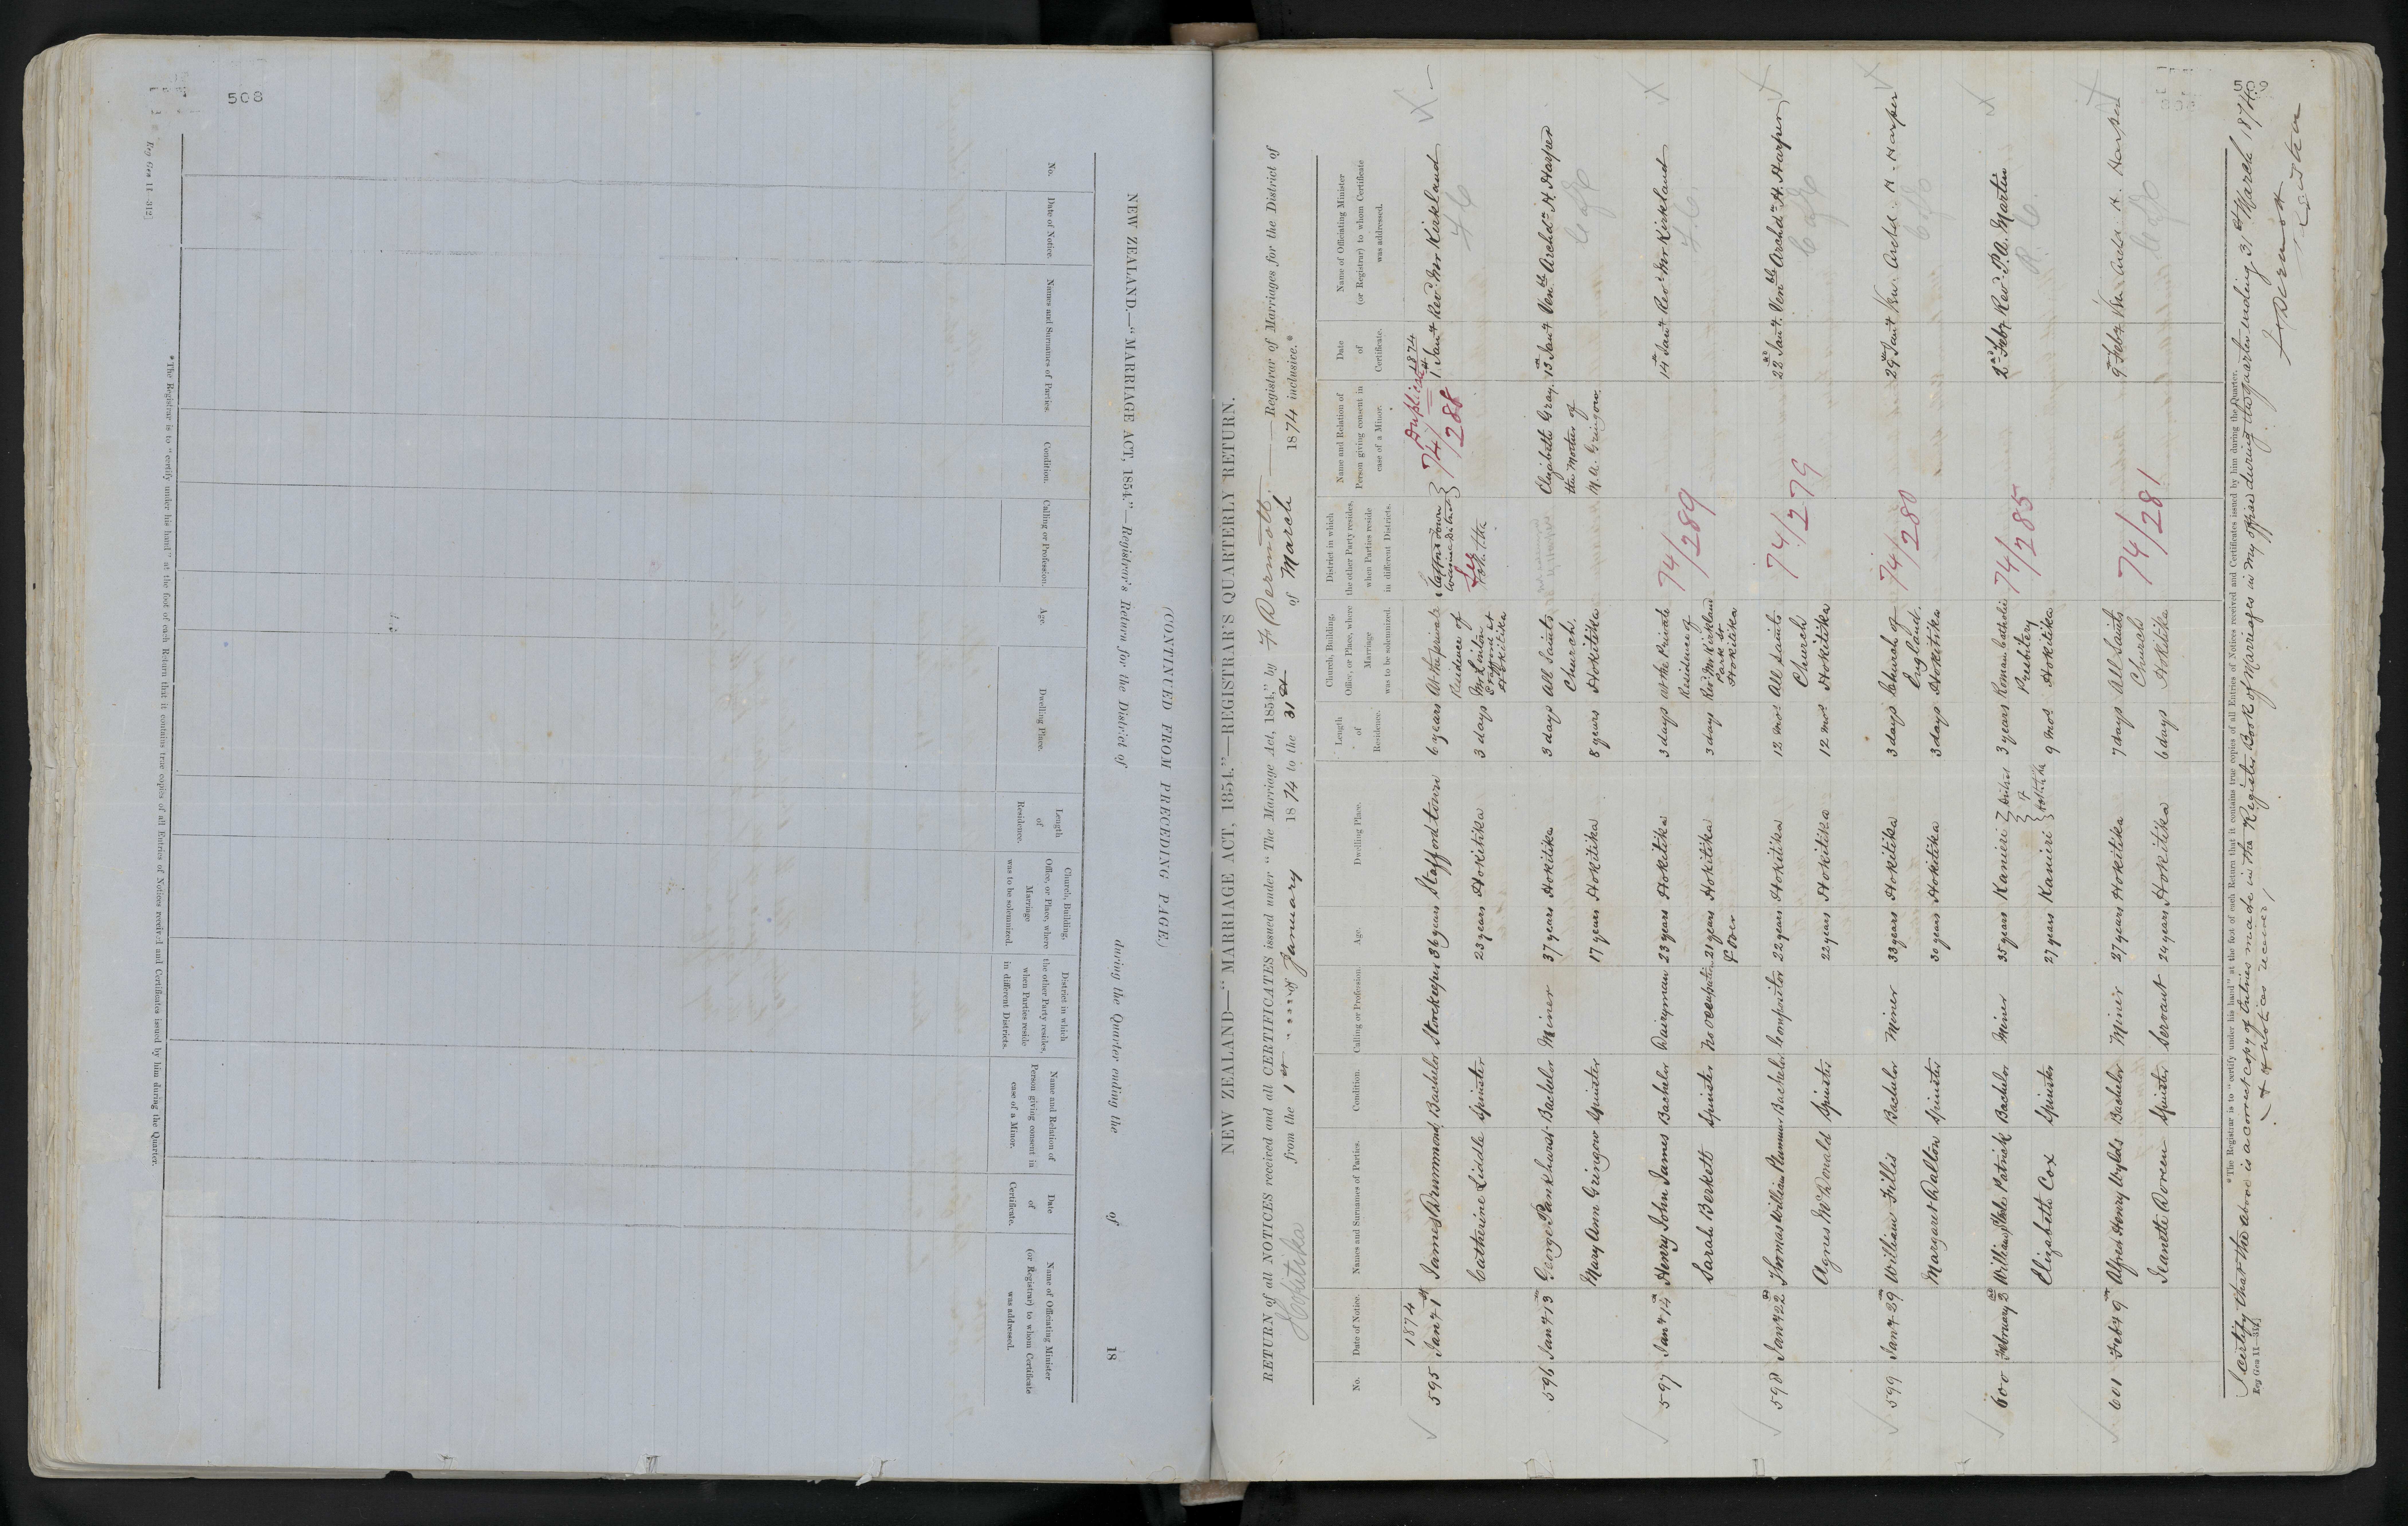 508
Reg Gen 11—312]
NEW ZEALAND.—"MARRIAGE ACT, 1854."—Registrar's Return for the District of during the Quarter ending the of 18
(CONTINUED FROM PRECEDING PAGE.)
No.
Date of Notice.
Names and Surnames of Parties.
Condition.
Calling or Profession.
Age.
Dwelling Place.
Length of Residence.
Church, Building, Office, or Place, where Marriage was to be solemnized.
District in which the other Party resides, when Parties reside in different Districts.
Name and Relation of Person giving consent in case of a Minor.
Date of Certificate.
Name of Officiating Minister (or Registrar) to whom Certificate was addressed.
*The Registrar is to "certify under his hand" at the foot of each Return that it contains true copies of all Entries of Notices received and Certificates issued by him during the Quarter.
509
NEW ZEALAND—"MARRIAGE ACT, 1854."—REGISTRAR'S QUARTERLY RETURN.
RETURN of all NOTICES received and all CERTIFICATES issued under "The Marriage Act, 1854," by Dermott Registrar of Marriages for the District of
Hokitika from the 1st January 1874 to the 31st of March 1874 inclusive.*
No.
Date of Notice.
Names and Surnames of Parties.
Condition.
Calling or Profession.
Age.
Dwelling Place.
Length of Residence.
Church, Building, Office, or Place, where Marriage was to be solemnized.
District in which the other Party resides, when Parties reside in different Districts.
Name and Relation of Person giving consent in case of a Minor.
Date of Certificate.
Name of Officiating Minister (or Registrar) to whom Certificate was addressed.
1874 Duplicate 1874
595 Jany 1st James Drummond Bachelor Storekeeper 36 years Stafford town 6 years At the private Stafford Town 74/288 1st Jany Revd Mr Kirkland
Catherine Liddle Spinster 23 years Hokitika 3 days Residence of Hokitika
596 Jany 13th George Pankhurst Bachelor Miner 37 years Hokitika 3 days All Saints Elizabeth Gray 13th Jany Venble Archdn H. Harper
Church. the Mother of C of E
Mary Ann Gringow Spinster 17 years Hokitika 8 years Hokitika M. A. Gringow.
597 Jany 14th Henry John James Bachelor Dairyman 23 years Hokitika 3 days At the Private 74/289 14th Jany Revd Mr Kirkland
Residence of
Sarah Berkett Spinster No occupation 21 years & over Hokitika 3 days Revd Mr Kirkland Park St Hokitika
598 Jany 22nd Thomas William Bachelor Compositor 22 years Hokitika 12 mos All Saints 74/279 22nd Jany Venble Archdn H. Harper
Church C of E
Agnes McDonald Spinster 22 years Hokitika 12 mos Hokitika
599 Jany 29th William Fillis Bachelor Miner 33 years Hokitika 3 days Church of 74/280 29th Jany Ven. Archd. H. Harper
England. C of E
Margaret Dalton Spinster 30 years Hokitika 3 days Hokitika
600 February William Patrick Bachelor Miner 35 years Kanieri 3 years Roman Catholic 74/285 2nd Feby Revd P. A. Martin
Presbitery R. C.
Elizabeth Cox Spinster 27 years Kanieri 9 mos Hokitika
601 Feby 9th Alfred Henry Wylds Bachelor Miner 27 years Hokitika 7 days All Saints 74/281 9th Feby Ven Archd. H. Harper
Church C of E
Jeanette Doreen Spinster Servant 24 years Hokitika 6 days Hokitika
*The Registrar is to "certify under his hand" at the foot of each Return that it contains true copies of all Entries of Notices received and Certificates issued by him during the Quarter.
I certify that the above is a correct copy of Entries made in the Register Book of Marriages in my office during the quarter ending 31st March 1874.
(& of notices received)
Reg Gen 11—312]